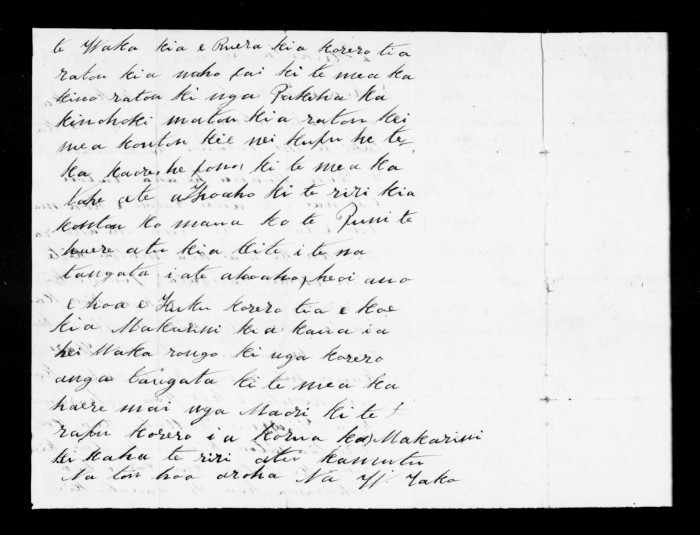 te Waka kia e Ruera kia korerotia
ratou kia noho pai ki te mea ka
kino ratou ki nga Pakeha ka
kinohoki matou kia ratou kei
mea koutou kie nei kupu he te
ka kaore he pono ki te mea ka
tohe ki te riri kia
koutou ko maua ko te Puni te
haere atu kia kite i te na
tangata i ate heoi ano
e hoa e korero tia e koe
kia Makarini kia kaua ia
hei Waka rongo ki nga korero
anga tangata ki te mea ka
haere mai nga Maori ki te
rapu korero i a korua ko Makarini
kei kaha te riri atu kamutu
Na tou hoa aroha Na